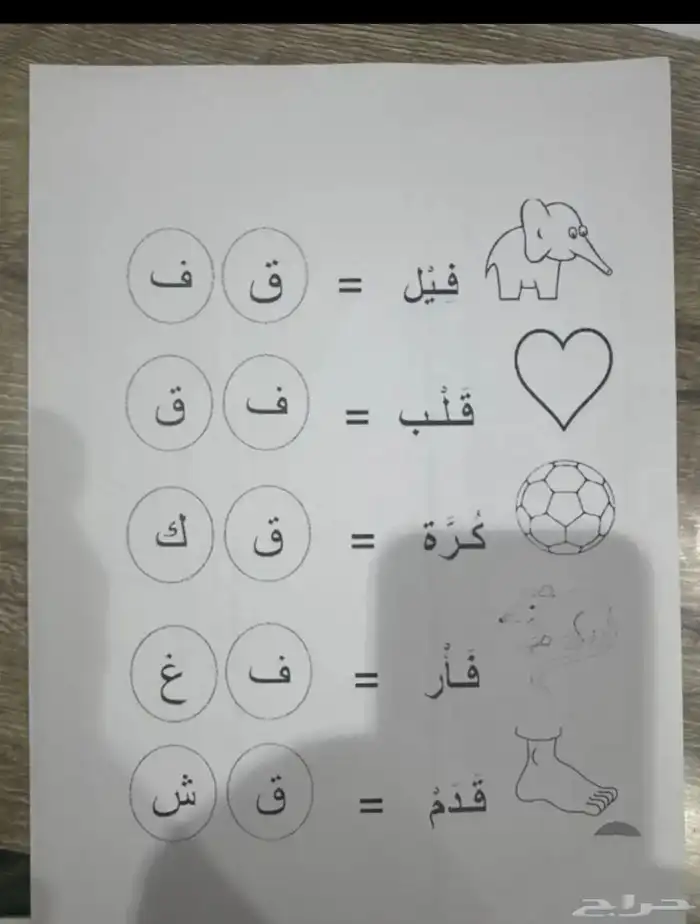 فِيْل = ق ف
قَلْب = ف ق
كُرَّة = ق ك
فَأْر = ف غ
قَدَمْ = ق ش
حراج